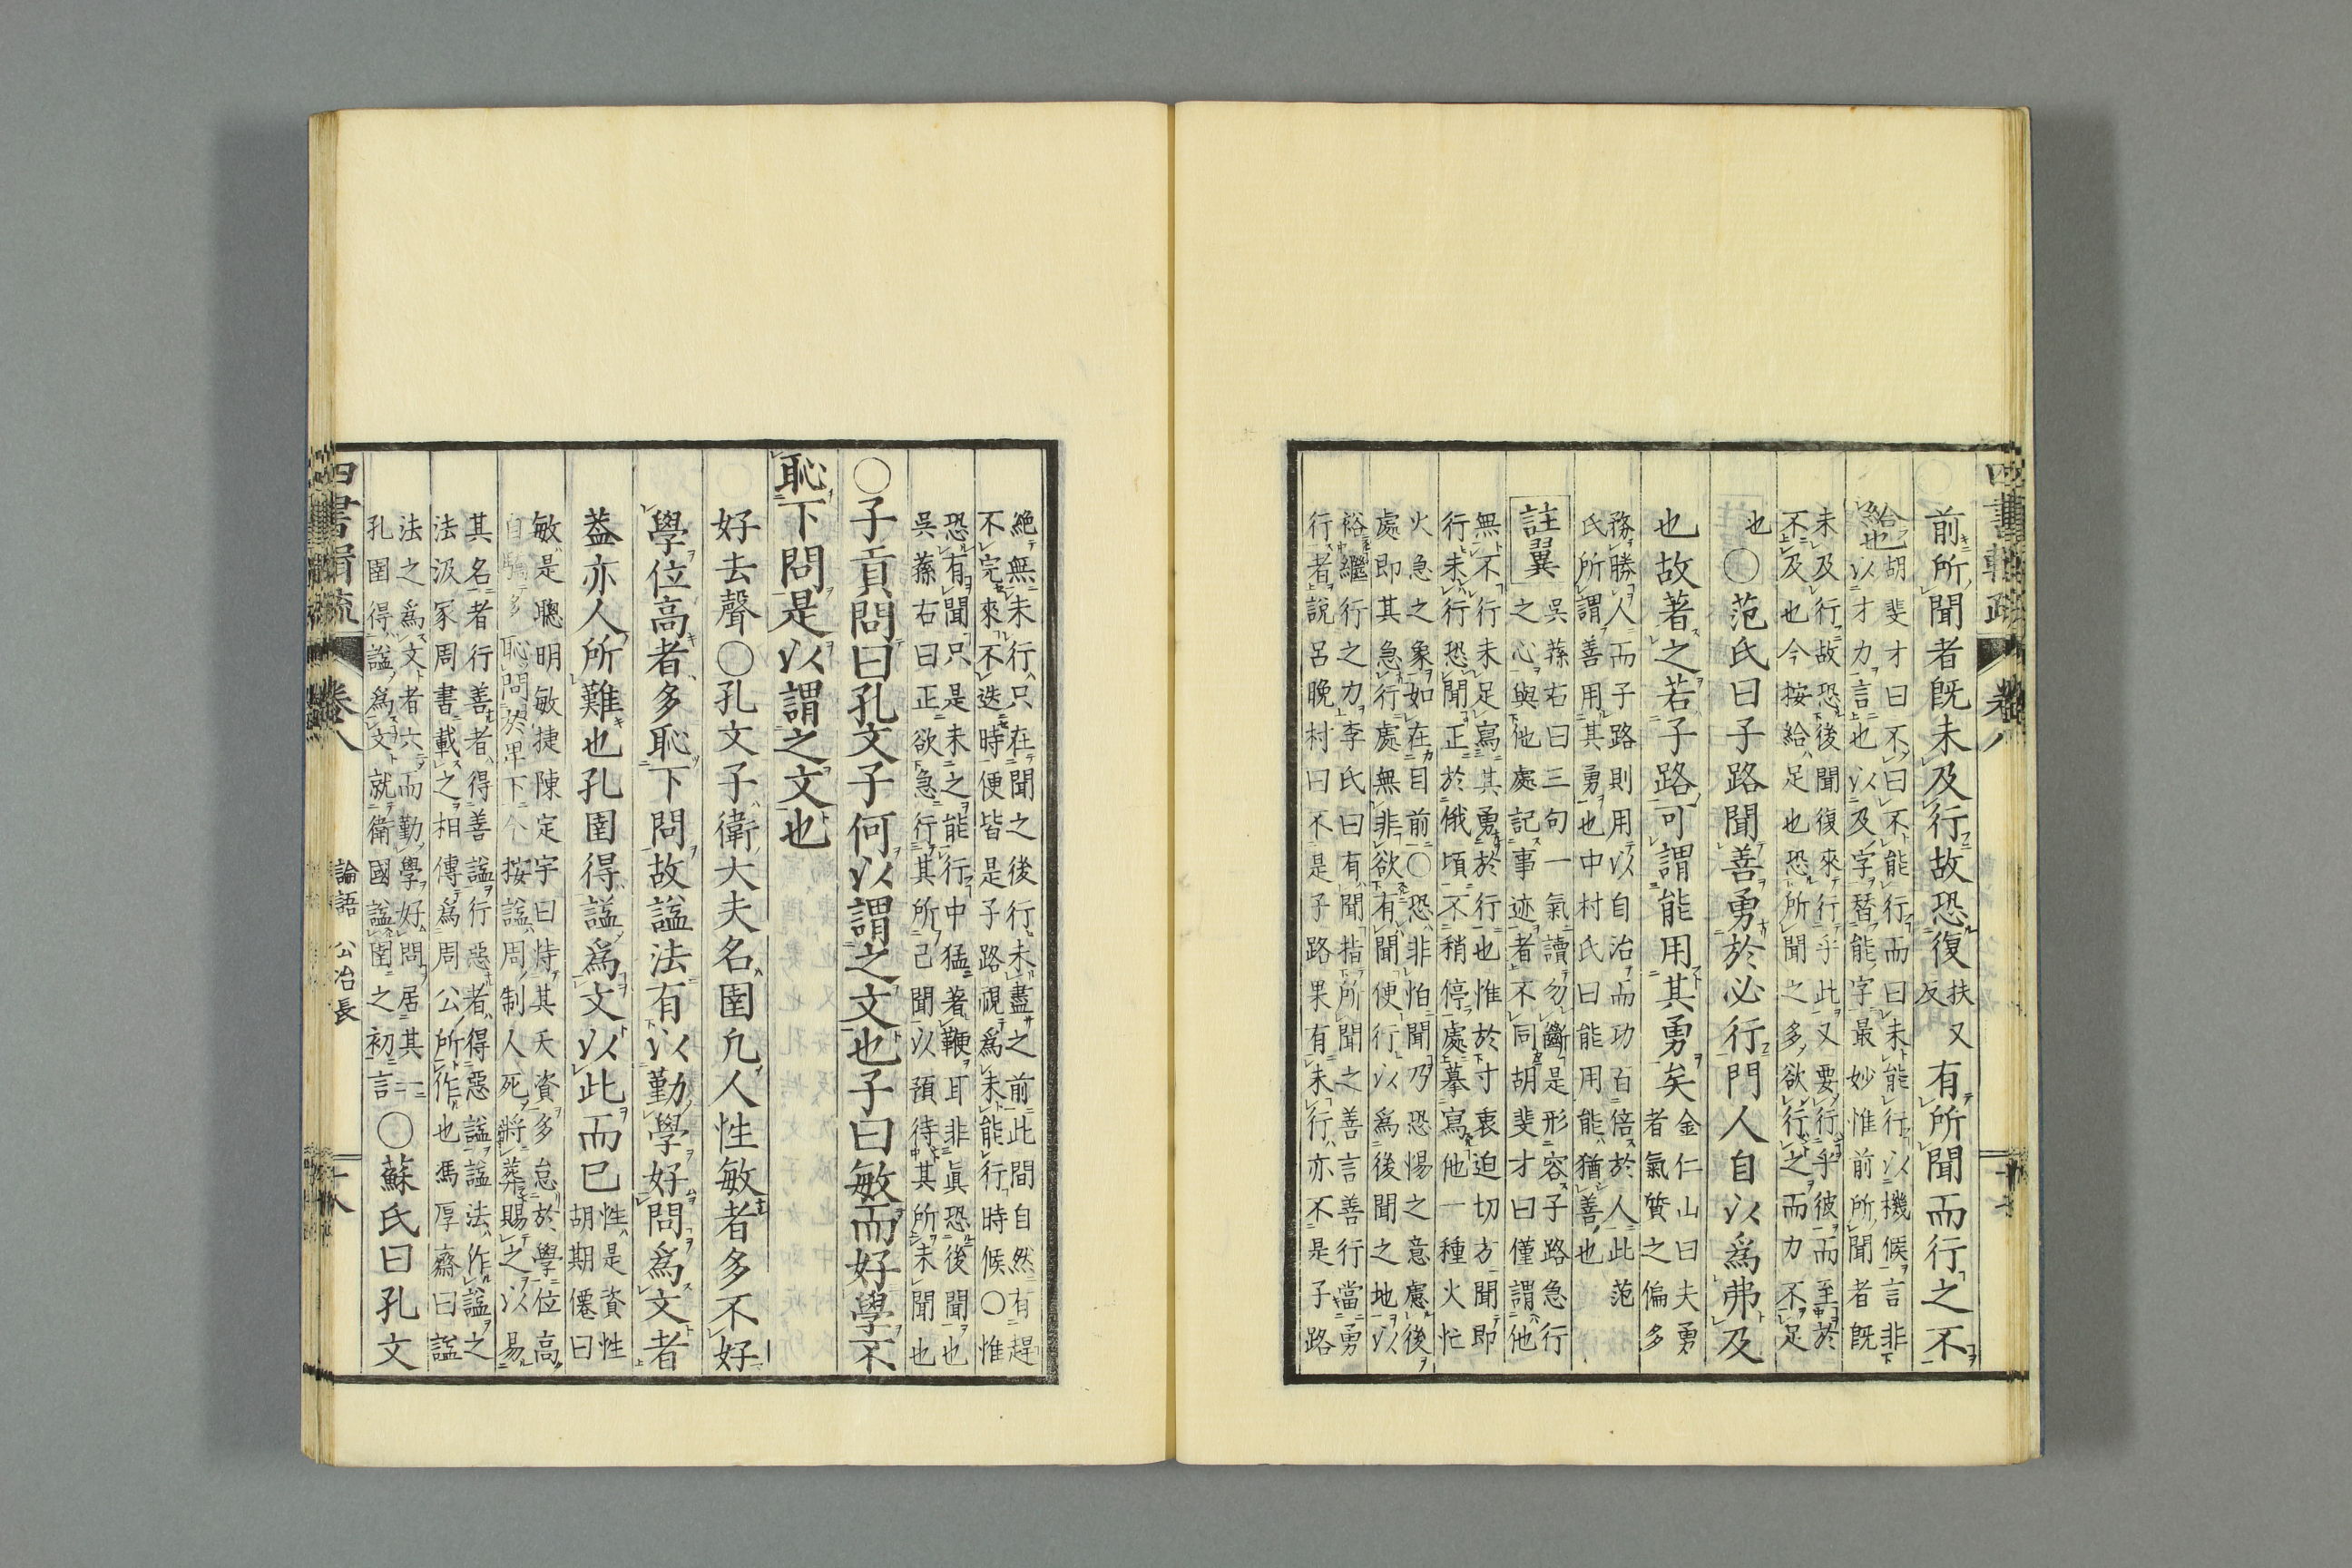 四書輯疏 卷八
前所聞者既未及行故恐復 扶又反 有所聞而行之不
給也 胡斐才曰不曰不能行而曰未能行以機候言非
以才力言也以及字替能字最妙惟前所聞者既
未及行故恐後聞復來行乎此又要行乎彼而至於
不及也今按給足也恐所聞之多欲行之而力不足
也〇范氏曰子路聞善勇於必行門人自以爲弗及
也故著之若子路可謂能用其勇矣 金仁山曰夫勇
者氣質之偏多
務勝人而子路則用以自治而功百倍於人此范
氏所謂善用其勇也中村氏曰能用能猶善也
註翼 吳蓀右曰三句一氣讀勿斷是形容子路急行
之心與他處記事迹者不同胡斐才曰僅謂他
無不行未足寫其勇於行也惟於寸衷迫切方聞即
行未行恐聞正於俄頃不稍停處摹寫他一種火忙
火急之象如在目前〇恐非怕聞乃恐惕之意慮後
處即其急行處無非欲有聞便行以爲後聞之地以
裕繼行之力李氏曰有聞指所聞之善言善行當勇
行者說呂晚村曰不是子路果有未行亦不是子路
絶無未行只在聞之後行未盡之前此間自然有趕
不完來不迭時便皆是子路視爲未能行時候〇惟
恐有聞只是未之能行中猛著鞭耳非眞恐後聞也
吳蓀右曰正欲急行其所已聞以預待其所未聞也
〇子貢問曰孔文子何以謂之文也子曰敏而好學不
恥下問是以謂之文也
好去聲〇孔文子衛大夫名圉凡人性敏者多不好
學位高者多恥下問故諡法有以勤學好問爲文者
葢亦人所難也孔圉得諡爲文以此而已 性是資性
胡期僊曰
敏是聰明敏捷陳定宇曰恃其天資多怠於學位高
自驕多恥問於卑下今按諡周制人死將葬賜之以易
其名者行善者得善諡行惡者得惡諡諡法作諡之
法汲冢周書載之相傳爲周公所作也馮厚齋曰諡
法之爲文者六而勤學好問居其一
孔圉得諡爲文就衛國諡圉之初言 〇蘇氏曰孔文
四書輯疏 卷八 論語 公冶長 十八